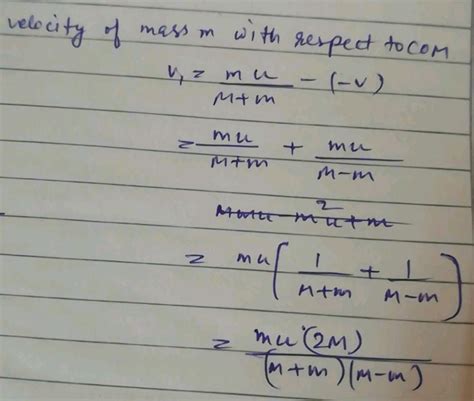 velocity of mass m with respect to COM
v₁ = mu/(M+m) - (-v)
= mu/(M+m) + mu/(M-m)
= mu[1/(M+m) + 1/(M-m)]
= mu(2M)/((M+m)(M-m))